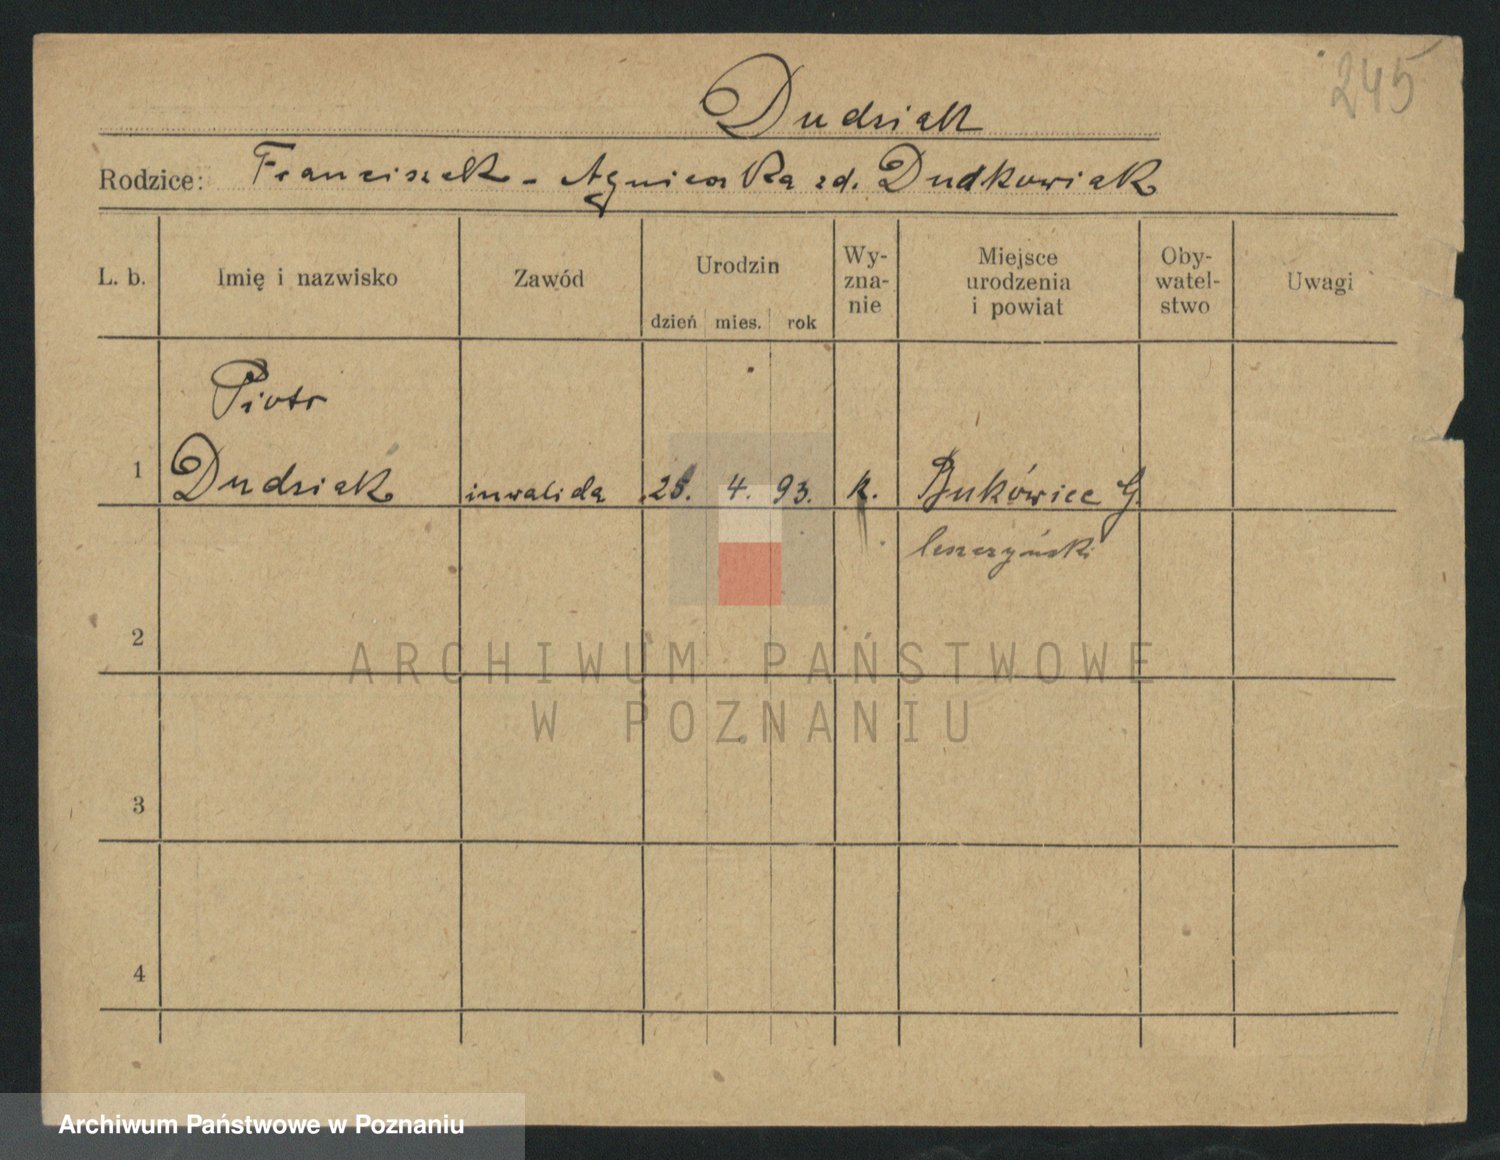 245
Dudziak
Rodzice: Franciszek - Agnieszka zd. Dudkowiak
L. b. Imię i nazwisko Zawód Urodzin dzień mies. rok Wy-zna-nie Miejsce urodzenia i powiat Oby-watel-stwo Uwagi
Piotr
1 Dudziak inwalida 4. 93. k. Bukówiec G.
leszczyński
2
ARCHIWUM PAŃSTWOWE
W POZNANIU
3
4
Archiwum Państwowe w Poznaniu